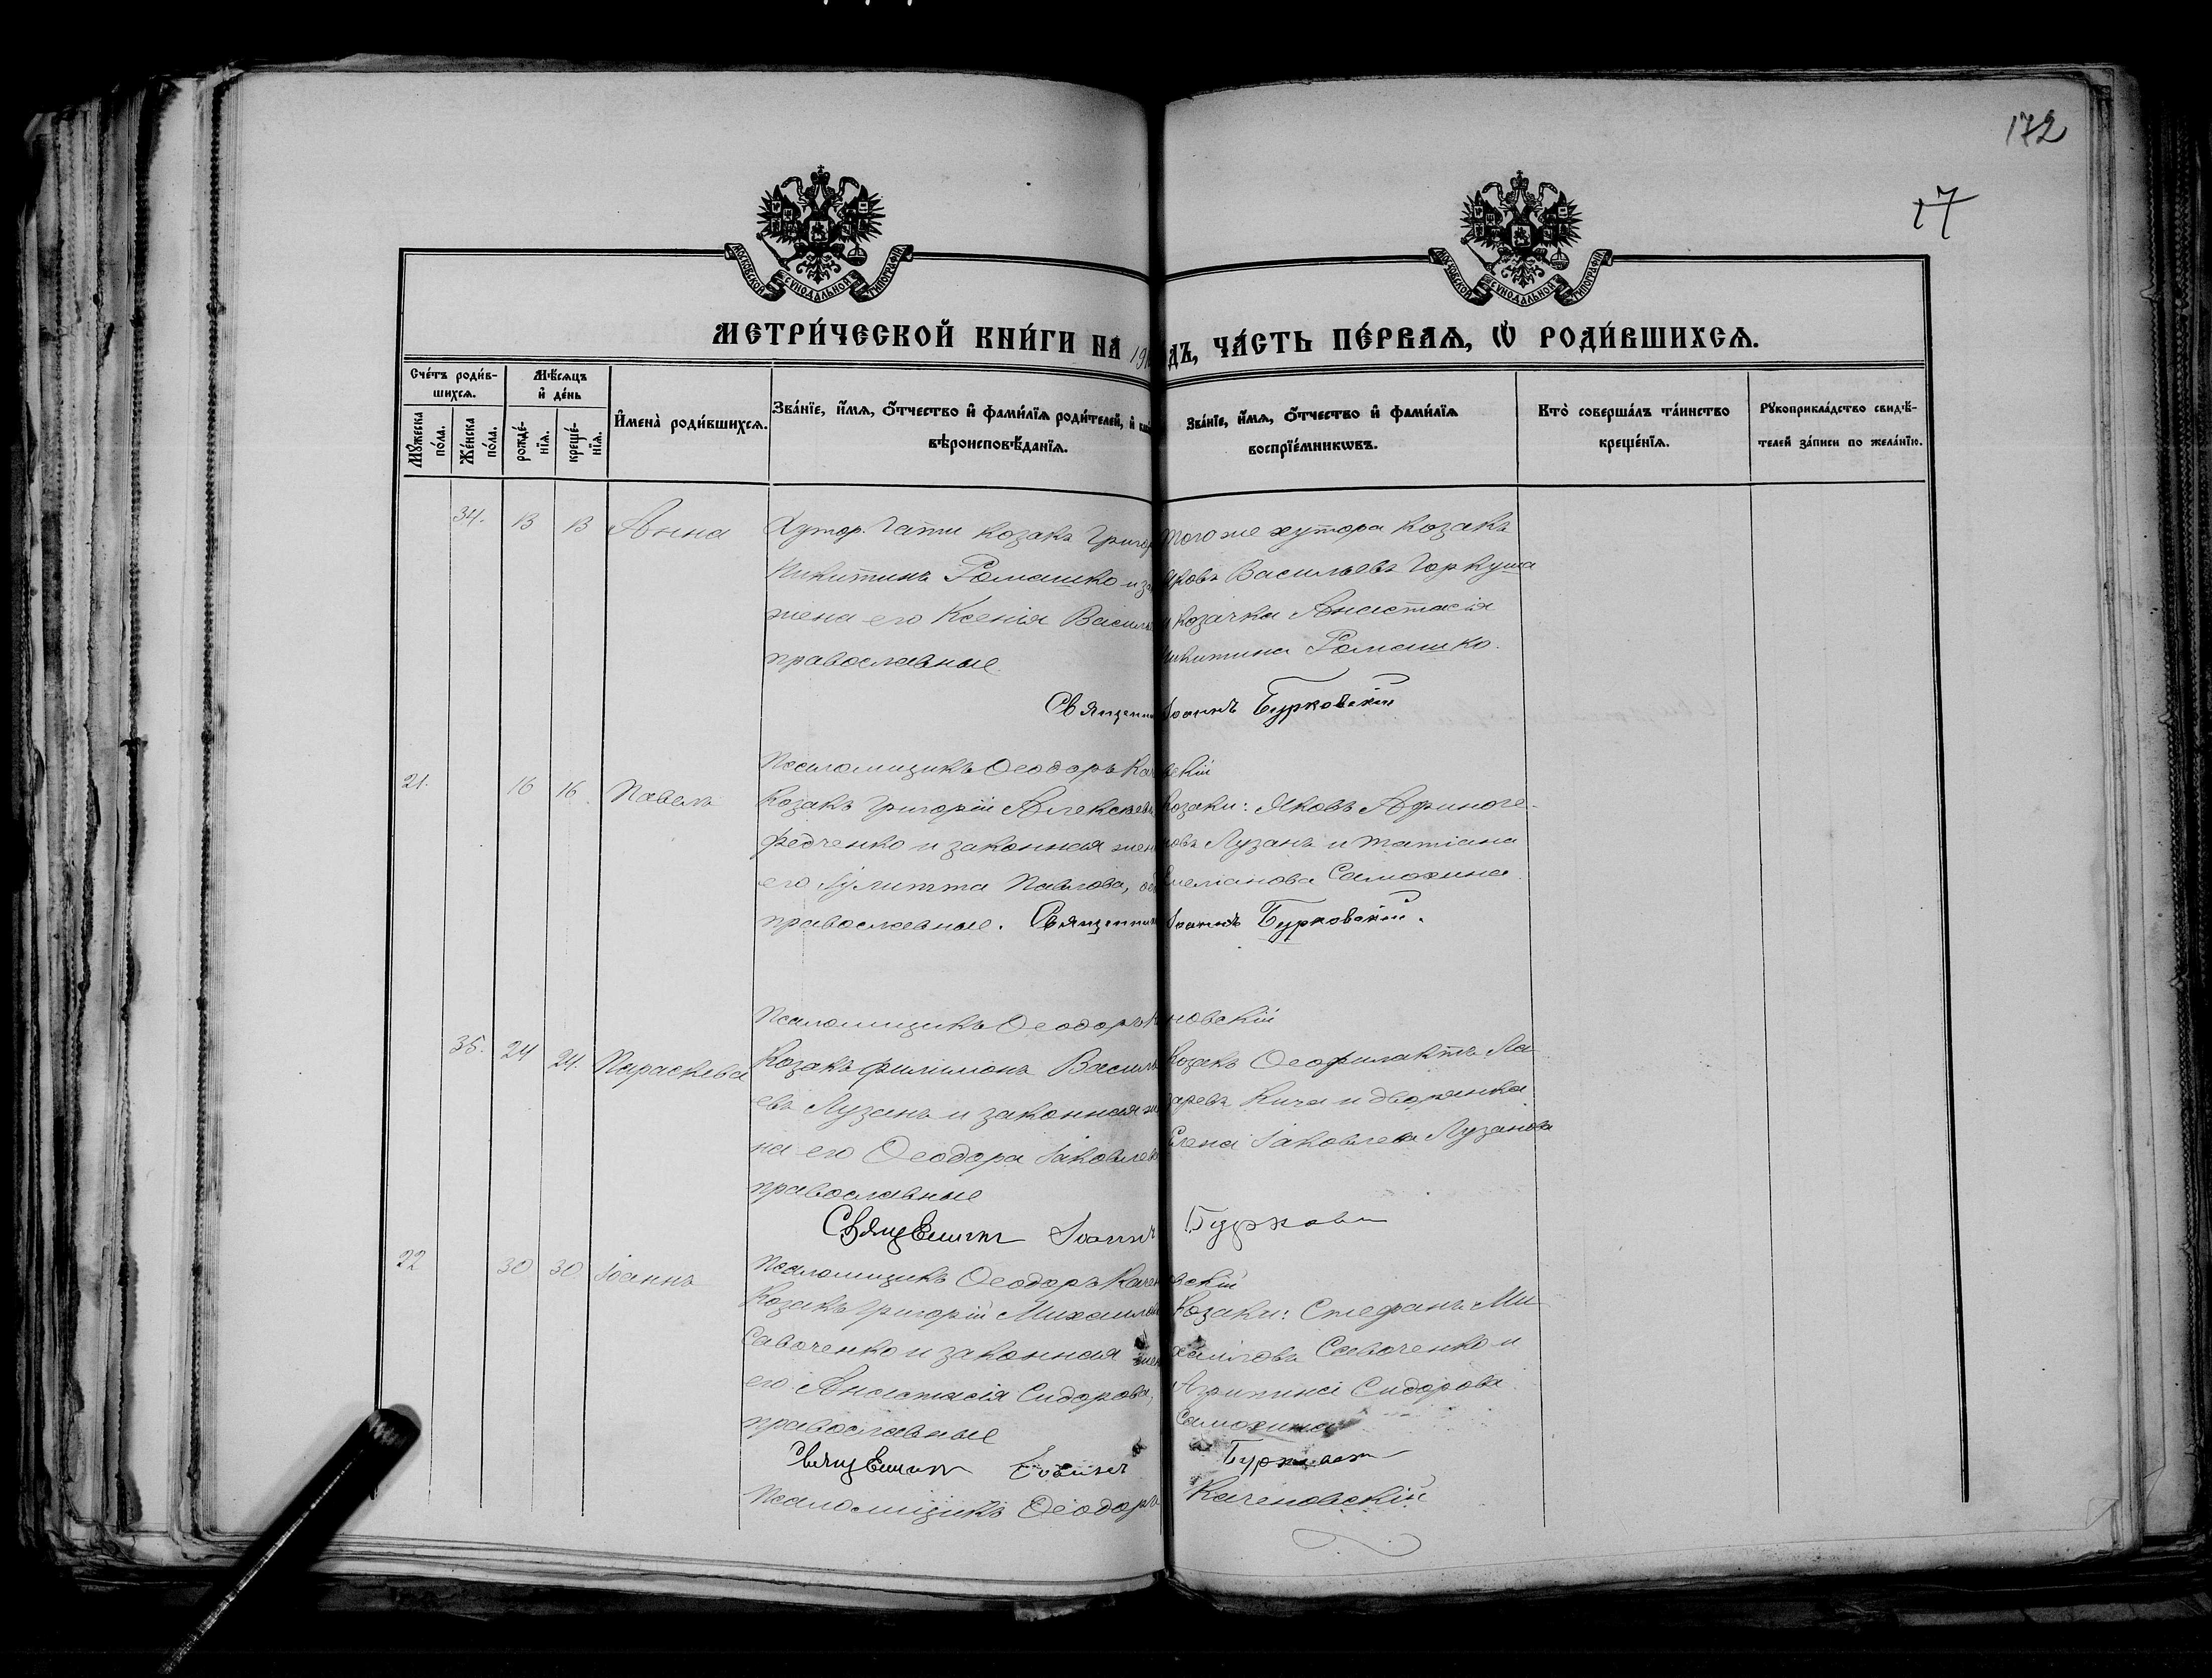 172
17
МОСКОВСКОЙ СѴНОДАЛЬНОЙ ТИПОГРАФІИ
МОСКОВСКОЙ СѴНОДАЛЬНОЙ ТИПОГРАФІИ
МЕТРИ́ЧЕСКОЙ КНИ́ГИ НА 19
ДЪ, ЧА́СТЬ ПЕ́РВАѦ, Ѡ҆ РОДИ́ВШИХСѦ.
Сче́тъ роди́в-
шихсѧ.
Мꙋ́жеска по́ла.
Же́нска по́ла.
Мѣ́сѧцъ
и҆ де́нь
рожде́-
нїѧ.
креще́-
нїѧ.
И҆мена̀ роди́вшихсѧ.
Зва́нїе, и҆́мѧ, ѻ҆́тчество и҆ фами́лїѧ роди́телей, и҆
вѣроисповѣ́данїѧ.
Зва́нїе, и҆́мѧ, ѻ҆́тчество и҆ фами́лїѧ
воспрїе́мникѡвъ.
Кто̀ соверша́лъ та́инство
креще́нїѧ.
Рꙋкоприкла́дство свидѣ́-
телей за́писи по жела́нїю.
34. 13 13 Анна
Хутор. Гати козакъ Григор
Никитинъ Ромашко и за
жена его Ксенія Василь
православные
того же хутора козакъ
Яковъ Васильевъ Горкуша
и козачка Анастасія
Никитина Ромашко.
Священни Іоаннъ Бурковскій
Псаломщикъ Ѳеодоръ Кач вскій
21. 16 16 Павелъ
Козакъ Григорій Алексѣевъ
Федченко и законная жен
его Іулитта Павлова, об
православные.
Козаки: Яковъ Афиноге-
новъ Лузанъ и Татіана
Емеліанова Самохина.
Священник Іоаннъ Бурковскій.
Псаломщикъ Ѳеодоръ К новскій
35. 24 24. Параскева
Козакъ Филимонъ Василь
евъ Лузанъ и законная же
на его Ѳеодора Іаковлев
православные
Козакъ Ѳеофилактъ Ла-
заревъ Кича и дворянка
Елена Іаковлева Лузанова
Священник Іоаннъ Бурковс
Псаломщикъ Ѳеодоръ Качен вскій
22 30 30 Іоаннъ
Козакъ Григорій Михаилов
Савоченко и законная жен
его Анастасія Сидорова,
православные
Козаки: Стефанъ Ми-
хаиловъ Савоченко и
Агрипина Сидорова
Самохина
Священник Іоаннъ
Псаломщикъ Ѳеодоръ Каченовскій